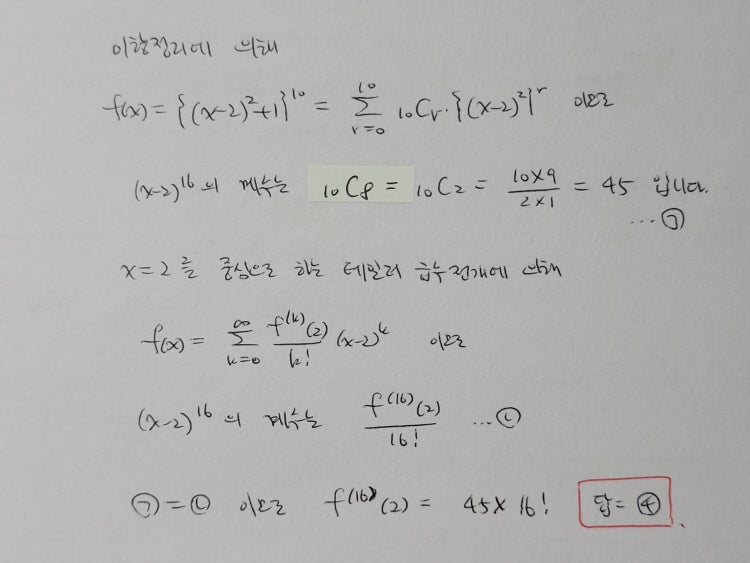 이항정리에 의해
f(x) = {(x-2)²+1}¹⁰ = Σ_{r=0}^{10} ₁₀Cᵣ·{(x-2)²}ʳ 이므로
(x-2)¹⁶의 계수는 ₁₀C₈ = ₁₀C₂ = (10×9)/(2×1) = 45 입니다.
…㉠
x=2를 중심으로 하는 테일러 급수전개에 의해
f(x) = Σ_{k=0}^{∞} f⁽ᵏ⁾(2)/k! (x-2)ᵏ 이므로
(x-2)¹⁶의 계수는 f⁽¹⁶⁾(2)/16! …㉡
㉠=㉡ 이므로 f⁽¹⁶⁾(2) = 45×16! 답=④.